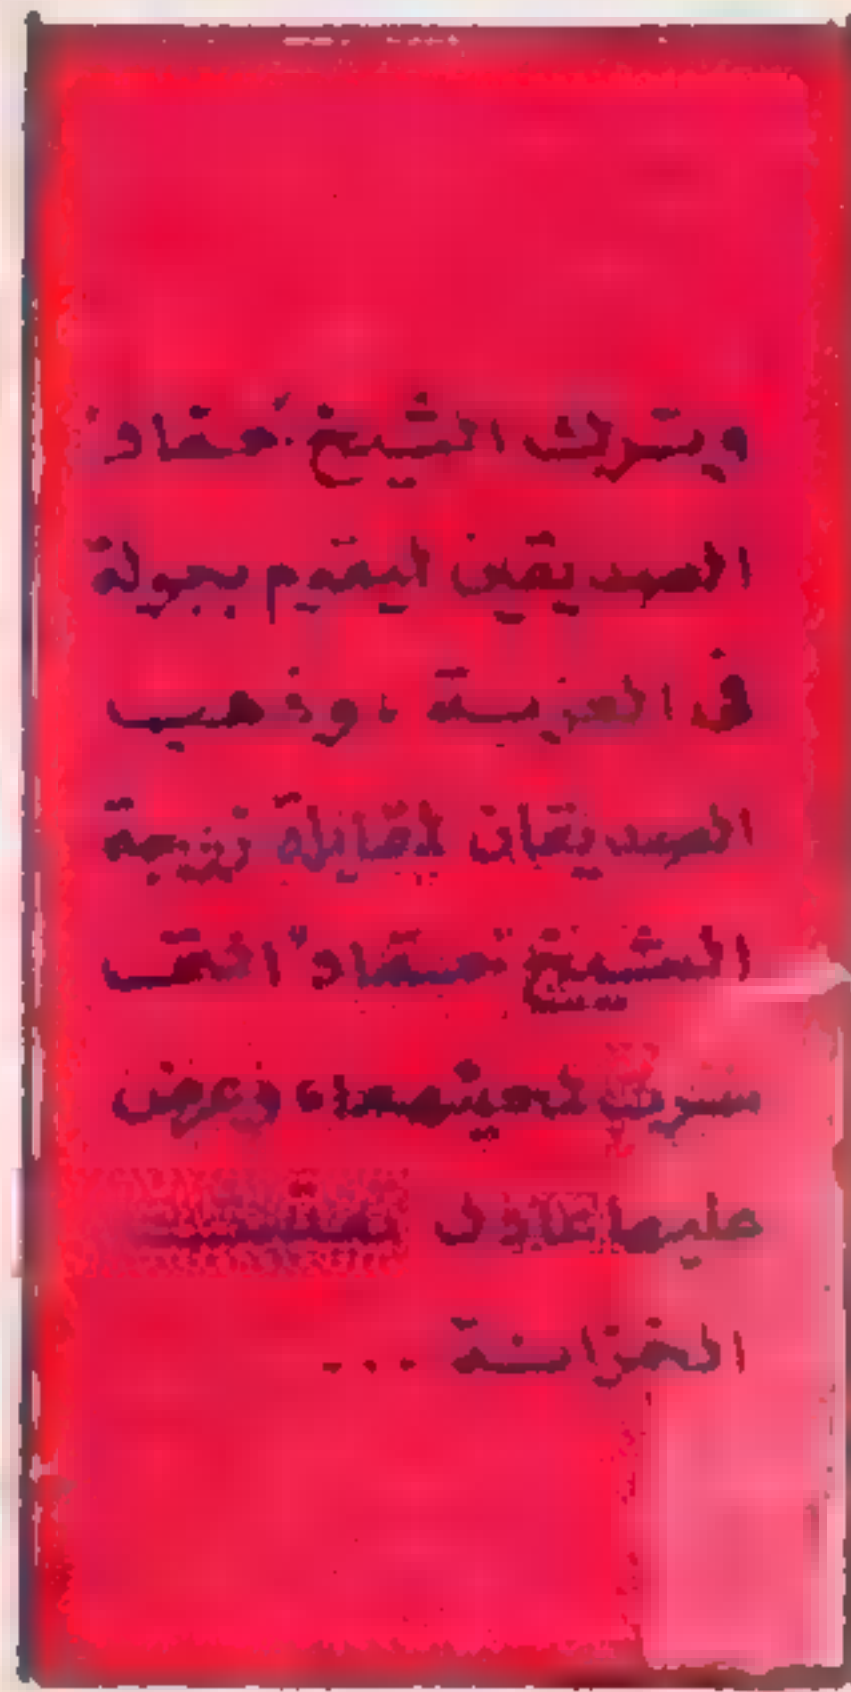 ويترك الشيخ "حماد"
الصديقين ليقوم بجولة
فى العزبة ، وذهب
الصديقان لمقابلة زوجة
الشيخ "حماد" التى
سرت لمجيئهما ، وعرض
عليها عادل تفتيش
الخزانة ...